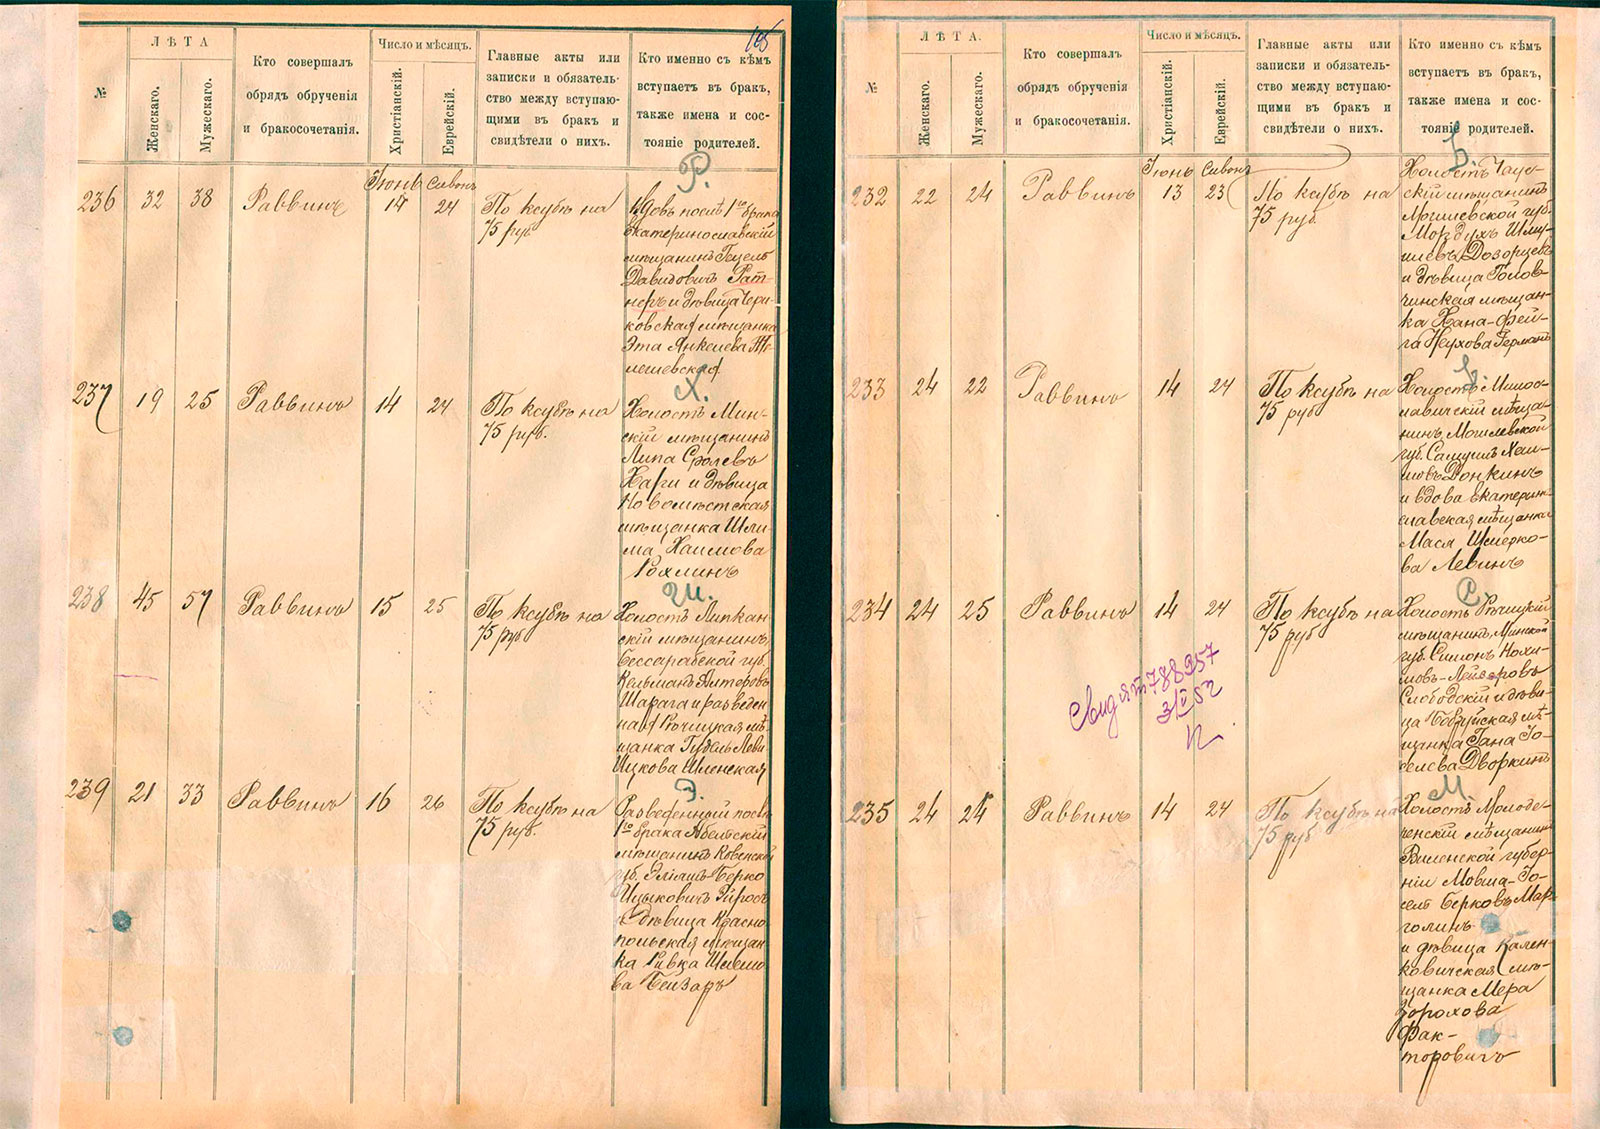 105
№
ЛѢТА
Женскаго.
Мужескаго.
Кто совершалъ
обрядъ обрученія
и бракосочетанія.
Число и мѣсяцъ.
Христіанскій.
Еврейскій.
Главные акты или
записки и обязатель-
ство между вступаю-
щими въ бракъ и
свидѣтели о нихъ.
Кто именно съ кѣмъ
вступаетъ въ бракъ,
также имена и сос-
тояніе родителей.
Р.
236 32 38 Раввинъ Іюнь 14 Сивонъ 24
По ксубѣ на
75 руб
Вдовъ послѣ 1го брака
Екатеринославскій
мѣщанинъ Гецель
Давидовичъ Рат-
неръ и дѣвица Чери-
ковская мѣщанка
Эта Янкелева
237 19 25 Раввинъ 14 24
По ксубѣ на
75 руб.
Х.
Холостъ Мин-
скій мѣщанинъ
Липа Сролевъ
и дѣвица
Новомѣстская
мѣщанка Шли-
ма Хаимова
Рохлинъ
238 45 57 Раввинъ 15 25
По ксубѣ на
75 руб
Ш.
Холостъ Липкан-
скій мѣщанинъ,
Бессарабской губ.
Кельманъ Алтеровъ
Шарага и разведен-
ная Рѣчицкая мѣ-
щанка Гудель Леви
Ицкова Шленская
239 21 33 Раввинъ 16 26
По ксубѣ на
75 руб.
Э.
Разведенный послѣ
1го брака Абельскій
мѣщанинъ Ковенской
губ. Эліашъ-Берко
Ицыковичъ
и дѣвица Красно-
польская мѣщан-
ка Ривка
ва Бейзаръ
№
ЛѢТА.
Женскаго.
Мужескаго.
Кто совершалъ
обрядъ обрученія
и бракосочетанія.
Число и мѣсяцъ.
Христіанскій.
Еврейскій.
Главные акты или
записки и обязатель-
ство между вступаю-
щими въ бракъ и
свидѣтели о нихъ.
Кто именно съ кѣмъ
вступаетъ въ бракъ,
также имена и сос-
тояніе родителей.
232 22 24 Раввинъ Іюнь 13 Сивонъ 23
По ксубѣ на
75 руб.
Холостъ Чаус-
скій мѣщанинъ
Могилевской губ.
Мордухъ Шлиу-
мевъ Дозорцевъ
и дѣвица Голов-
чинская мѣщан-
ка Хана-Фей-
га Нухова Германъ
233 24 22 Раввинъ 14 24
По ксубѣ на
75 руб
Холостъ Милос-
лавичскій мѣща-
нинъ Могилевской
губ. Самуилъ Хаи-
мовъ Донкинъ
и вдова Екатерино-
славская мѣщанка
Мася Шмерко-
ва Левинъ
234 24 25 Раввинъ 14 24
По ксубѣ на
75 руб
С.
Холостъ Рѣчицкій
мѣщанинъ, Минской
губ. Симонъ Нохи-
мовъ-Лейзеровъ
Слободскій и дѣви-
ца Бобруйская мѣ-
щанка Гана Іо-
селева Дворкинъ
788257
3/V 52
235 24 24 Раввинъ 14 24
По ксубѣ на
75 руб
М.
Холостъ Молоде-
ченскій мѣщанинъ
Виленской губер-
ніи Мовша-Іо-
сель Берковъ Мар-
голинъ
и дѣвица Кален-
ковичская мѣ-
щанка Мера
Зорохова
Фак-
торовичъ